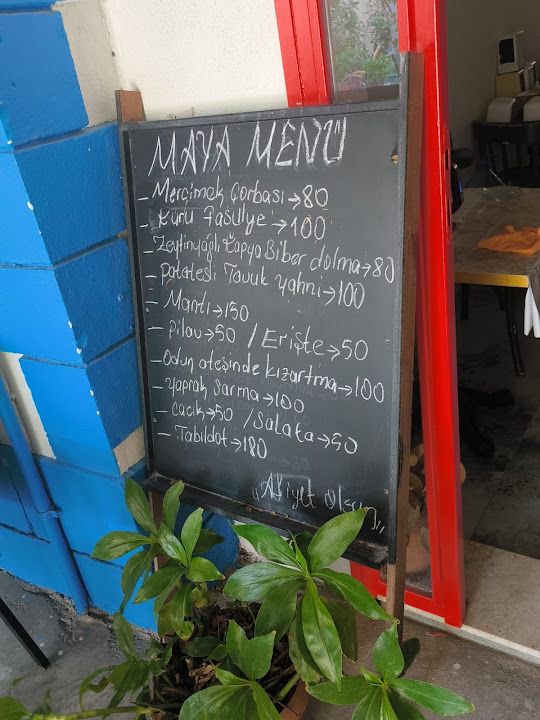 MAYA MENÜ
- Merçimek Çorbası → 80
- Kuru Fasulye → 100
- Zeytinyağlı Kapya Biber dolma → 80
- Patatesli Tavuk Yahni → 100
- Mantı → 150
- Pilav → 50 / Erişte → 50
- Odun ateşinde kızartma → 100
- Yaprak Sarma → 100
- Cacık → 50 / Salata → 50
- Tabldot → 180
„Afiyet Olsun„